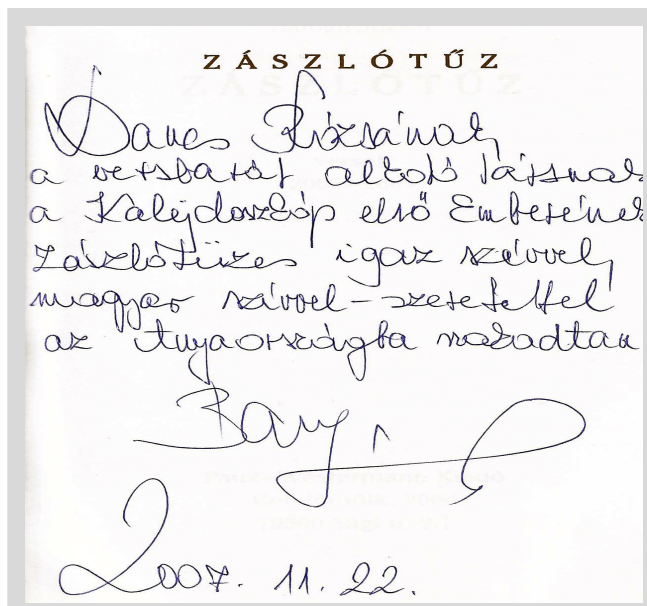 ZÁSZLÓTŰZ
Dancs Rózsának,
a versbarát alkotó társnak
a Kalejdoszkóp első Emberének
zászlótüzes igaz szívvel,
magyar szívvel - szeretettel
az Anyaországba szakadtan
2007. 11. 22.